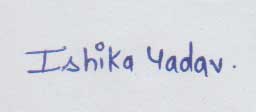 Ishika Yadav.